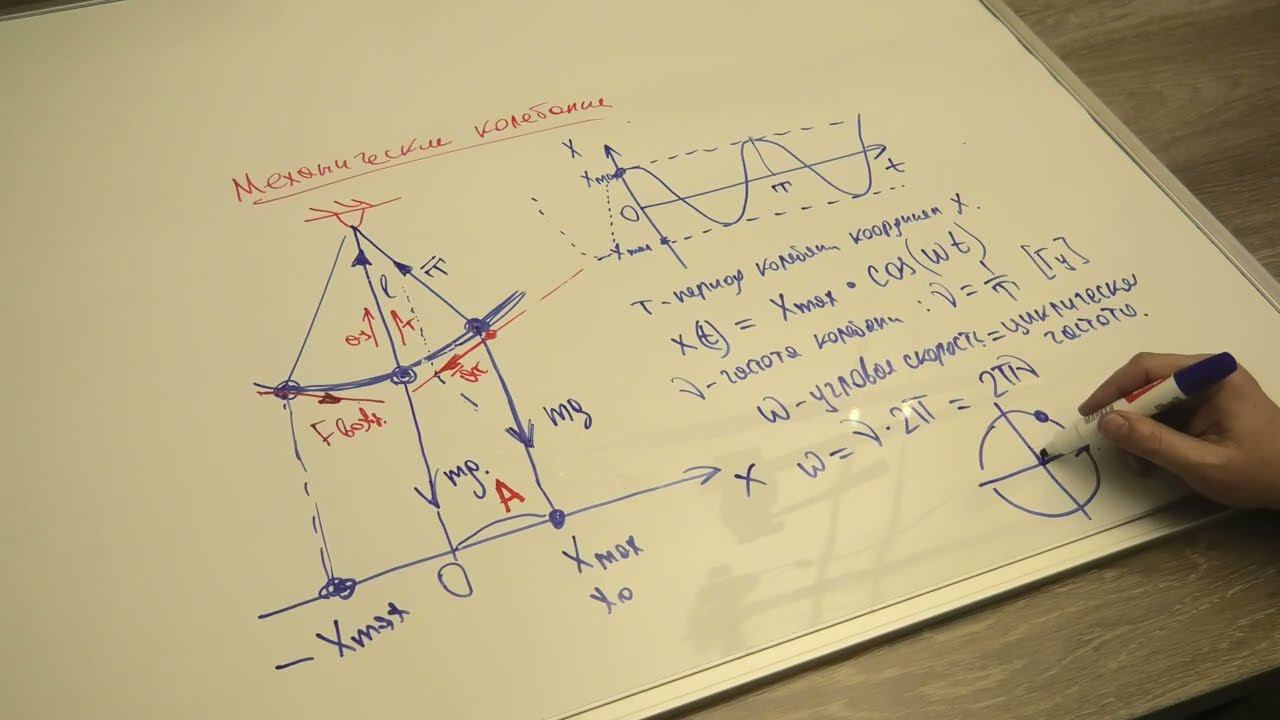 Механические колебания
X
Xmax
O
-Xmax
T
t
T - период колебан. координаты X.
X(t) = Xmax • cos(ωt)
ν - частота колебан: ν = 1/T [Гц]
ω - угловая скорость = циклическая
частота.
ω = ν • 2π = 2πν
l
T
Fвозв.
mg
mg.
A
X
O
Xmax
X0
- Xmax